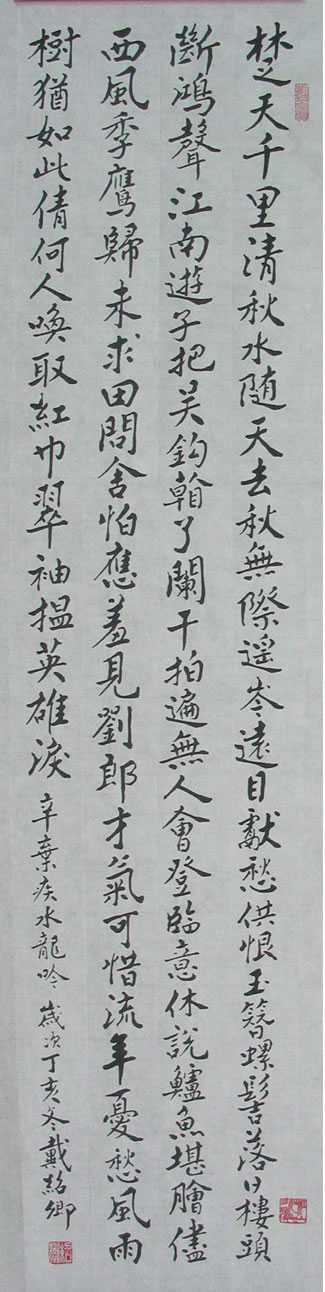 楚天千里清秋水隨天去秋無際遥岑遠目獻愁供恨玉簪螺髻落日樓頭
斷鴻聲江南遊子把吴鈎看了闌干拍遍無人會登臨意休說鱸魚堪膾儘
西風季鷹歸未求田問舍怕應羞見劉郎才氣可惜流年憂愁風雨
樹猶如此倩何人喚取紅巾翠袖揾英雄淚 辛棄疾水龍吟 歲次丁亥冬戴紹卿